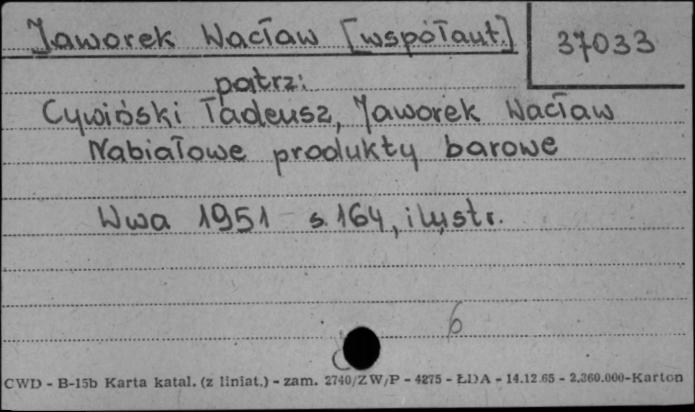 Jaworek Wacław [współaut.]
37033
patrz:
Cywiński Tadeusz, Jaworek Wacław
Nabiałowe produkty barowe
Wwa 1951 s. 164, ilustr.
6
CWD - B-15b Karta katal. (z liniat.) - zam. 2740/ZW/P - 4275 - ŁDA - 14.12.65 - 2.360.000-Karton